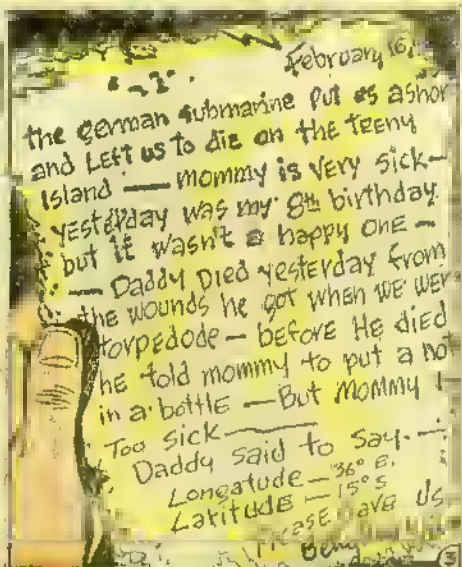 February 16,
the German submarine put us ashor
and Left us to die on the teeny
Island — mommy is very sick—
yesterday was my 8th birthday
but it wasn't a happy one —
— Daddy Died yesterday from
the wounds he got when we wer
torpedode — before He died
he told mommy to put a not
in a bottle — But Mommy I
Too sick —
Daddy said to say. —
Longatude — 36° E.
Latitude — 15° S
Please save us
3